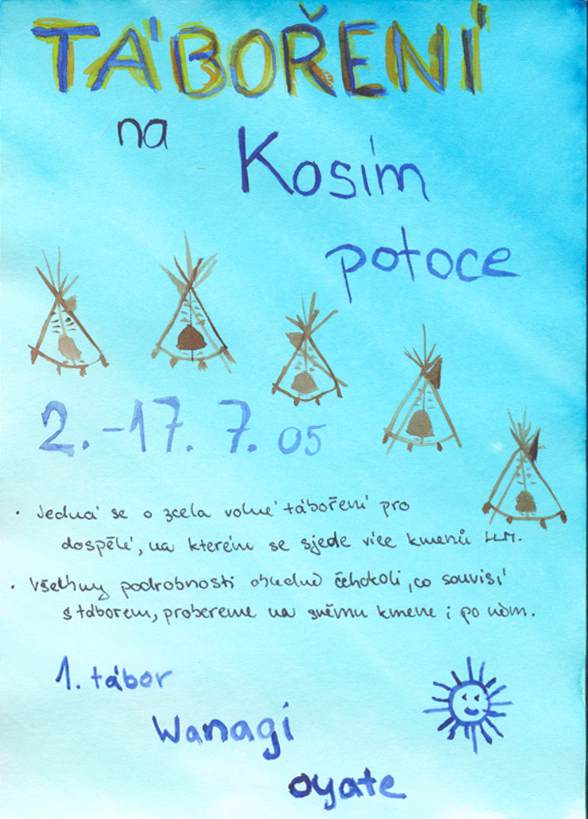 TÁBOŘENÍ
na
Kosím
potoce
2.-17. 7. 05
• Jedná se o zcela volné táboření pro
dospělé, na kterém se sjede více kmenů LLM.
• Všechny podrobnosti ohledně čehokoli, co souvisí
s táborem, probereme na sněmu kmene i po něm.
1. tábor
Wanagi
oyate